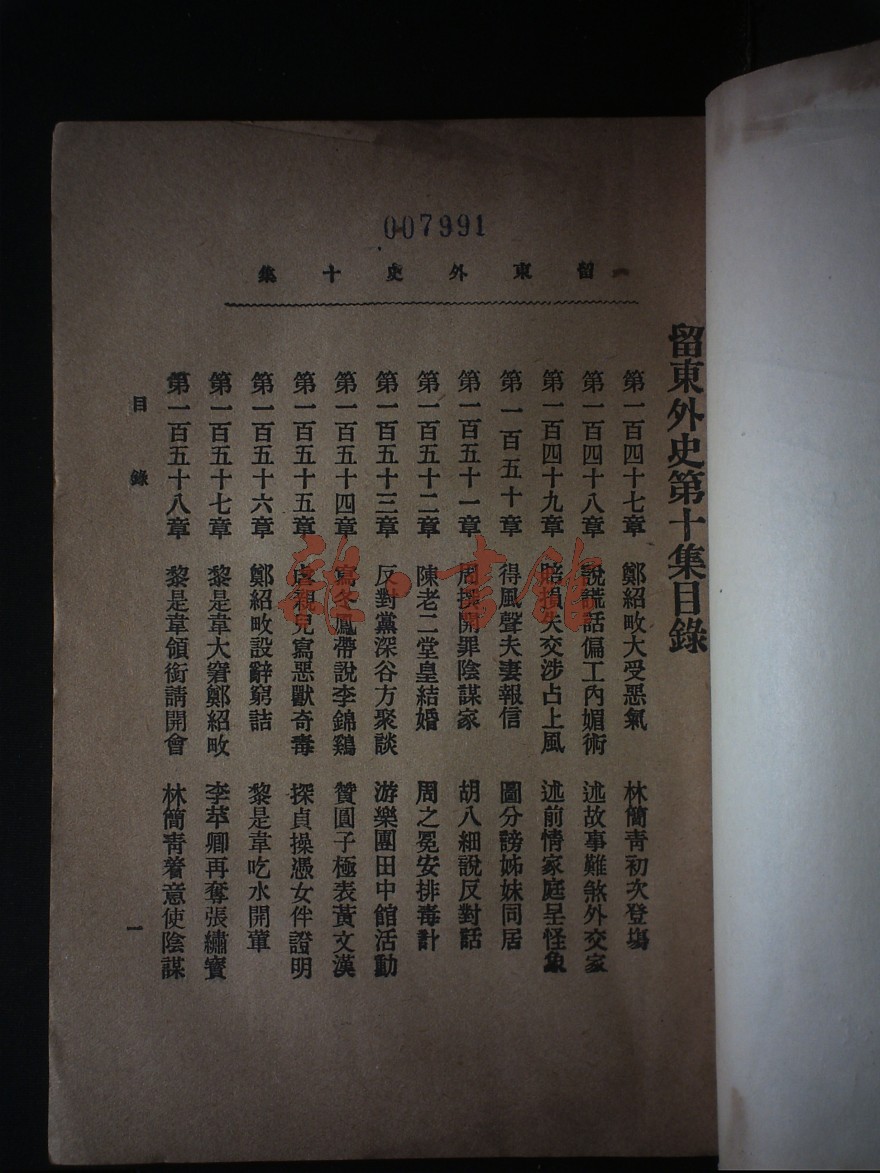 007991
留東外史十集
留東外史第十集目錄
第一百四十七章 鄭紹畋大受惡氣 林簡青初次登塲
第一百四十八章 說謊話偏工內媚術 述故事難煞外交家
第一百四十九章 賠損失交涉占上風 述前情家庭呈怪象
第一百五十章 得風聲夫妻報信 圖分謗姊妹同居
第一百五十一章 周撰開罪陰謀家 胡八細說反對話
第一百五十二章 陳老二堂皇結婚 周之冕安排毒計
第一百五十三章 反對黨深谷方聚談 游樂團田中館活動
第一百五十四章 寫冬鳳帶說李錦鷄 贊圓子極表黃文漢
第一百五十五章 虐親兒寫惡獸奇毒 探貞操憑女伴證明
第一百五十六章 鄭紹畋設辭窮詰 黎是韋吃水開葷
第一百五十七章 黎是韋大窘鄭紹畋 李苹卿再奪張繡寳
第一百五十八章 黎是韋領銜請開會 林簡青着意使陰謀
目錄
一
雜·書館